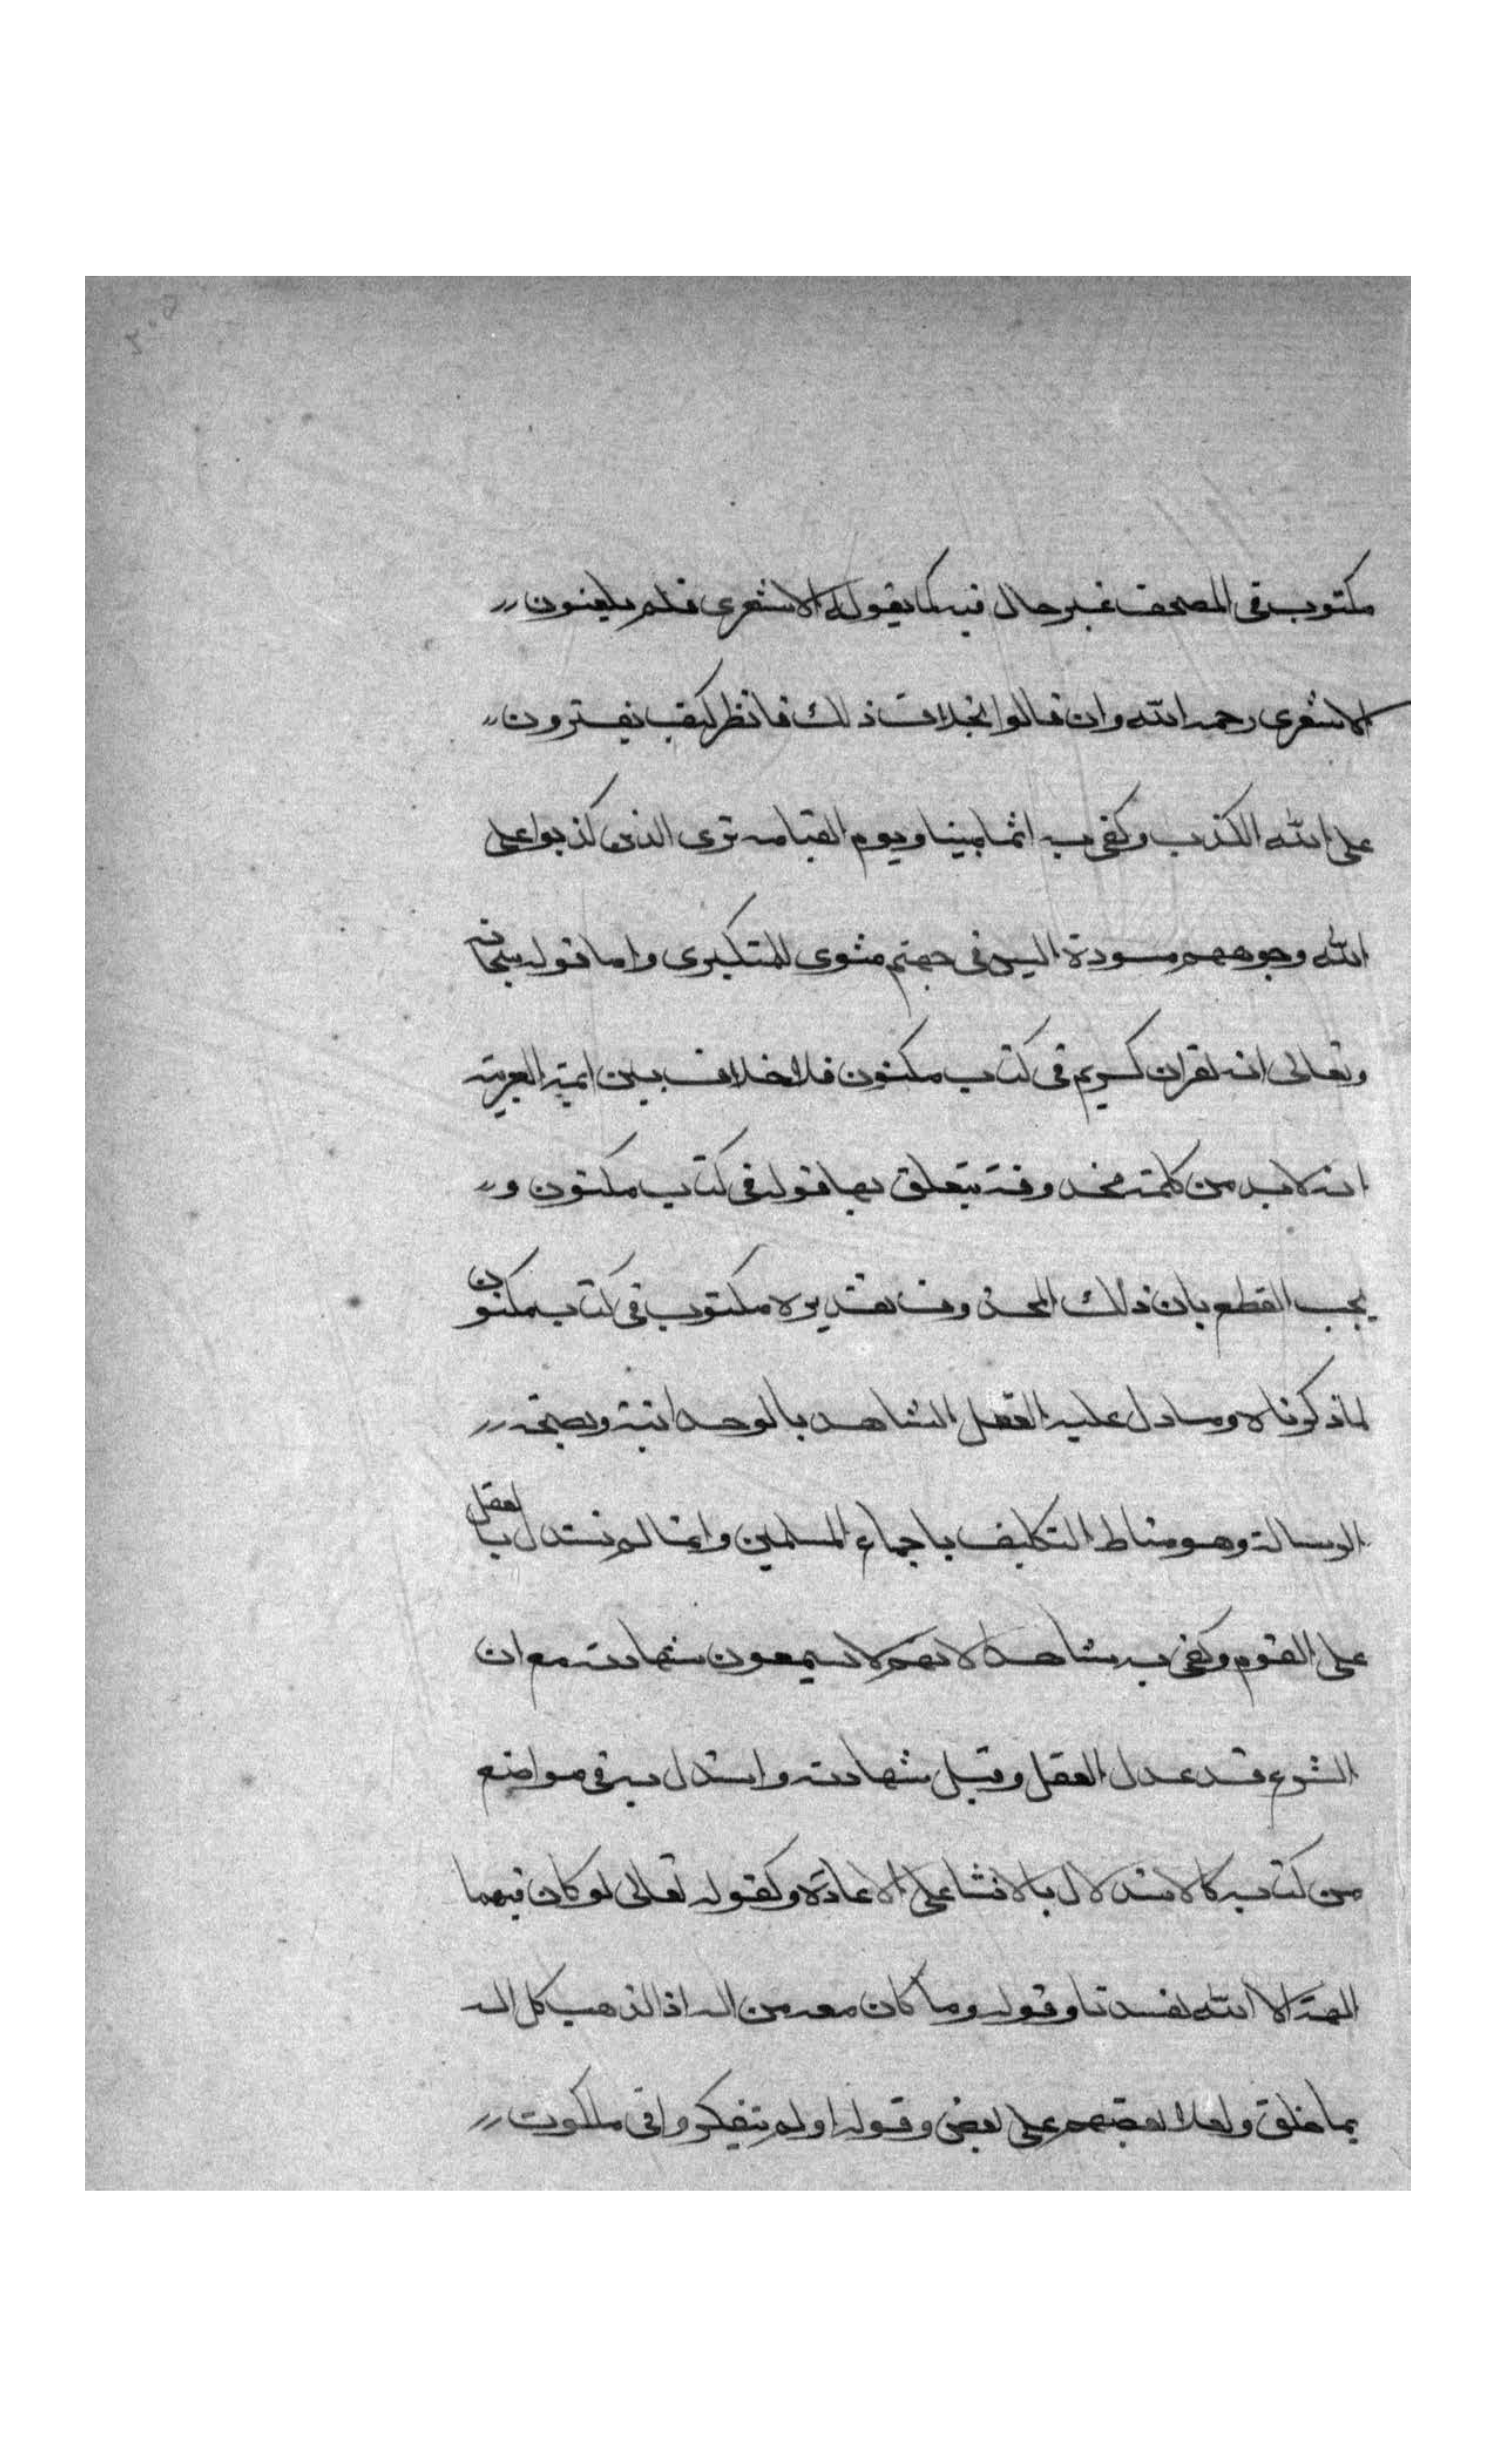 مكتوب في المصحف غير حال فيه كما يقوله الاشعرى فلم يلعنون
الاشعرى رحمه الله وان قالوا بخلاف ذلك فانظر كيف يفترون
على الله الكذب وكفى به اثما مبينا ويوم القيامه ترى الذين كذبوا على
الله وجوههم مسودة اليس في جهنم مثوى للمتكبرى واما قوله سبحانه
وتعالى انه لقران كريم في كتاب مكنون فلا خلاف بين ايمة العربية
انه لا بد من كلمة محذوفة يتعلق بها قوله في كتاب مكنون و
يجب القطع بان ذلك المحذوف تقديره مكتوب في كتاب مكنون
لما ذكرناه وما دل عليه العقل الشاهد بالوحدانية وبصحة
الرسالة وهو مناط التكليف باجماع المسلمين وانما لم نستدل بالعقل
على القوم وكفى به شاهدا لانهم لا يسمعون شهادته مع ان
الشرع قد عدل العقل وقبل شهادته واستدل به في مواضع
من كتابه كالاستدلال بالانشا على الاعادة وكقوله تعالى لو كان فيهما
الهة الا الله لفسدتا وقوله وما كان معه من اله اذا لذهب كل اله
بما خلق ولعلا بعضهم على بعض وقوله اولم يتفكروا في ملكوت